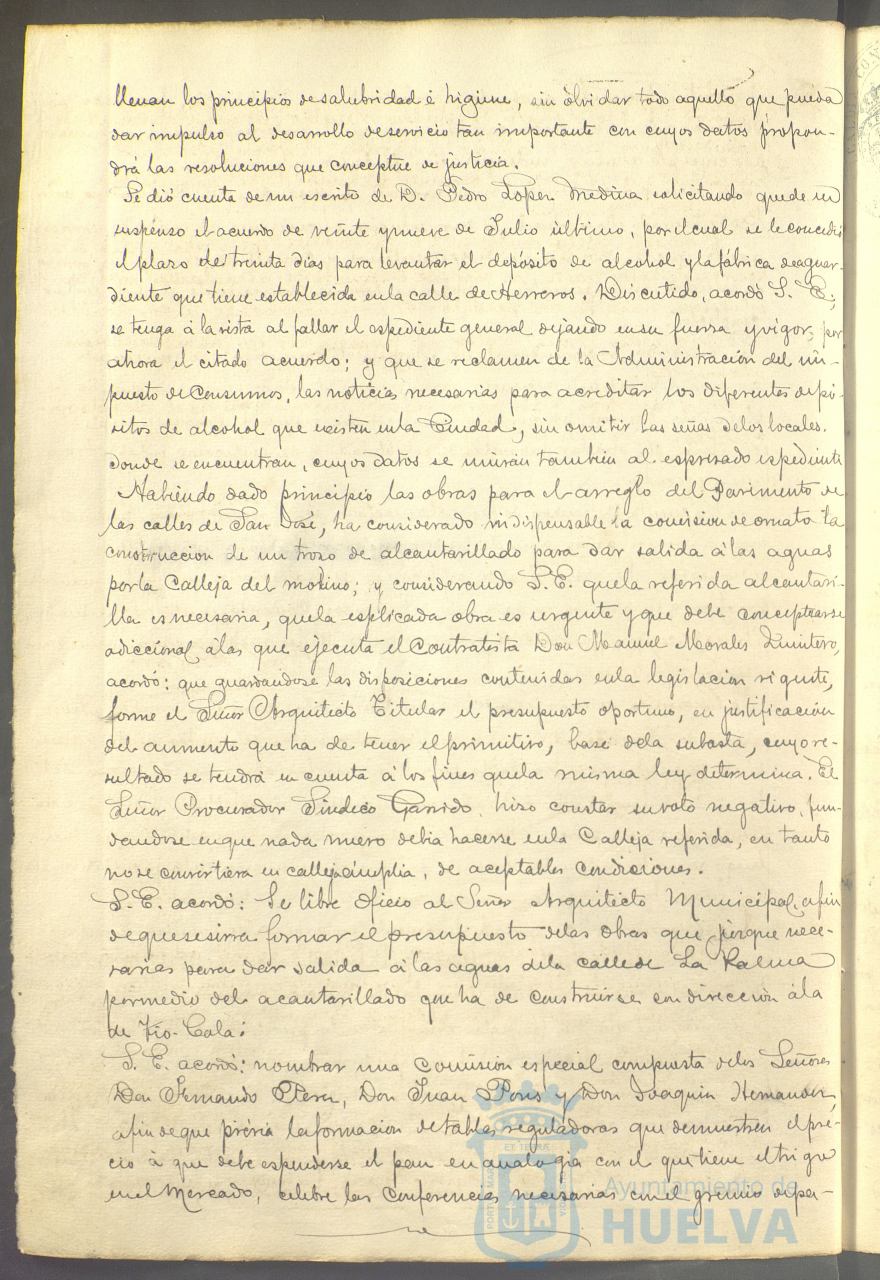 llenan los principios de salubridad é higiene, sin olvidar todo aquello que pueda
dar impulso al desarrollo de servicio tan importante con cuyos datos propon-
drá las resoluciones que conceptue de justicia.
Se dió cuenta de un escrito de D. Pedro Lopez Medina solicitando quede en
suspenso el acuerdo de veinte y nueve de Julio último, por el cual se le concedió
el plazo de treinta dias para levantar el depósito de alcohol y la fábrica de aguar-
diente que tiene establecida en la calle de Herreros. Discutido, acordó S. E.,
se tenga á la vista al fallar el espediente general dejando en su fuerza y vigor, por
ahora el citado acuerdo; y que se reclamen de la Administración del im-
puesto de Consumos, las noticias necesarias para acreditar los diferentes depó-
sitos de alcohol que existen en la Ciudad, sin omitir las señas de los locales.
donde se encuentran, cuyos datos se unirán tambien al espresado espediente
Habiendo dado principio las obras para el arreglo del Pavimento de
las calles de San José, ha considerado indispensable la comision de ornato la
construccion de un trozo de alcantarillado para dar salida á las aguas
por la Calleja del molino; y considerando S. E. que la referida alcantari-
lla es necesaria, que la esplicada obra es urgente y que debe conceptuarse
adiccional á las que ejecuta el Contratista Don Manuel Morales Quintero,
acordó: que guardandose las disposiciones contenidas en la legislacion vigente,
forme el Señor Arquitecto Titular el presupuesto oportuno, en justificación
del aumento que ha de tener el primitivo, base de la subasta, cuyo re-
sultado se tendrá en cuenta á los fines que la misma ley determina. El
Señor Procurador Síndico Garrido, hizo constar su voto negativo, fun-
dandose en que nada nuevo debia hacerse en la Calleja referida, en tanto
no se convirtiera en calleja ámplia, de aceptables condiciones.
S. E. acordó: Se libre oficio al Señor Arquitecto Municipal, a fin
de que se sirva formar el presupuesto de las obras que juzgue nece-
sarias para dar salida á las aguas de la calle de La Palma
por medio del acantarillado que ha de construirse con dirección á la
de Tio-Cala:
S. E. acordó: nombrar una Comision especial compuesta de los Señores
Don Fernando Perez, Don Juan Pons y Don Joaquin Hernandez,
a fin de que prévia la formacion de tablas reguladoras que demuestren el pre-
cio á que debe espenderse el pan en analogia con el que tiene el trigo
en el Mercado, celebre las Conferencias necesarias con el gremio de pa-
PORTUS MARIS
ET TERRÆ
CUSTODIA
Ayuntamiento de
HUELVA